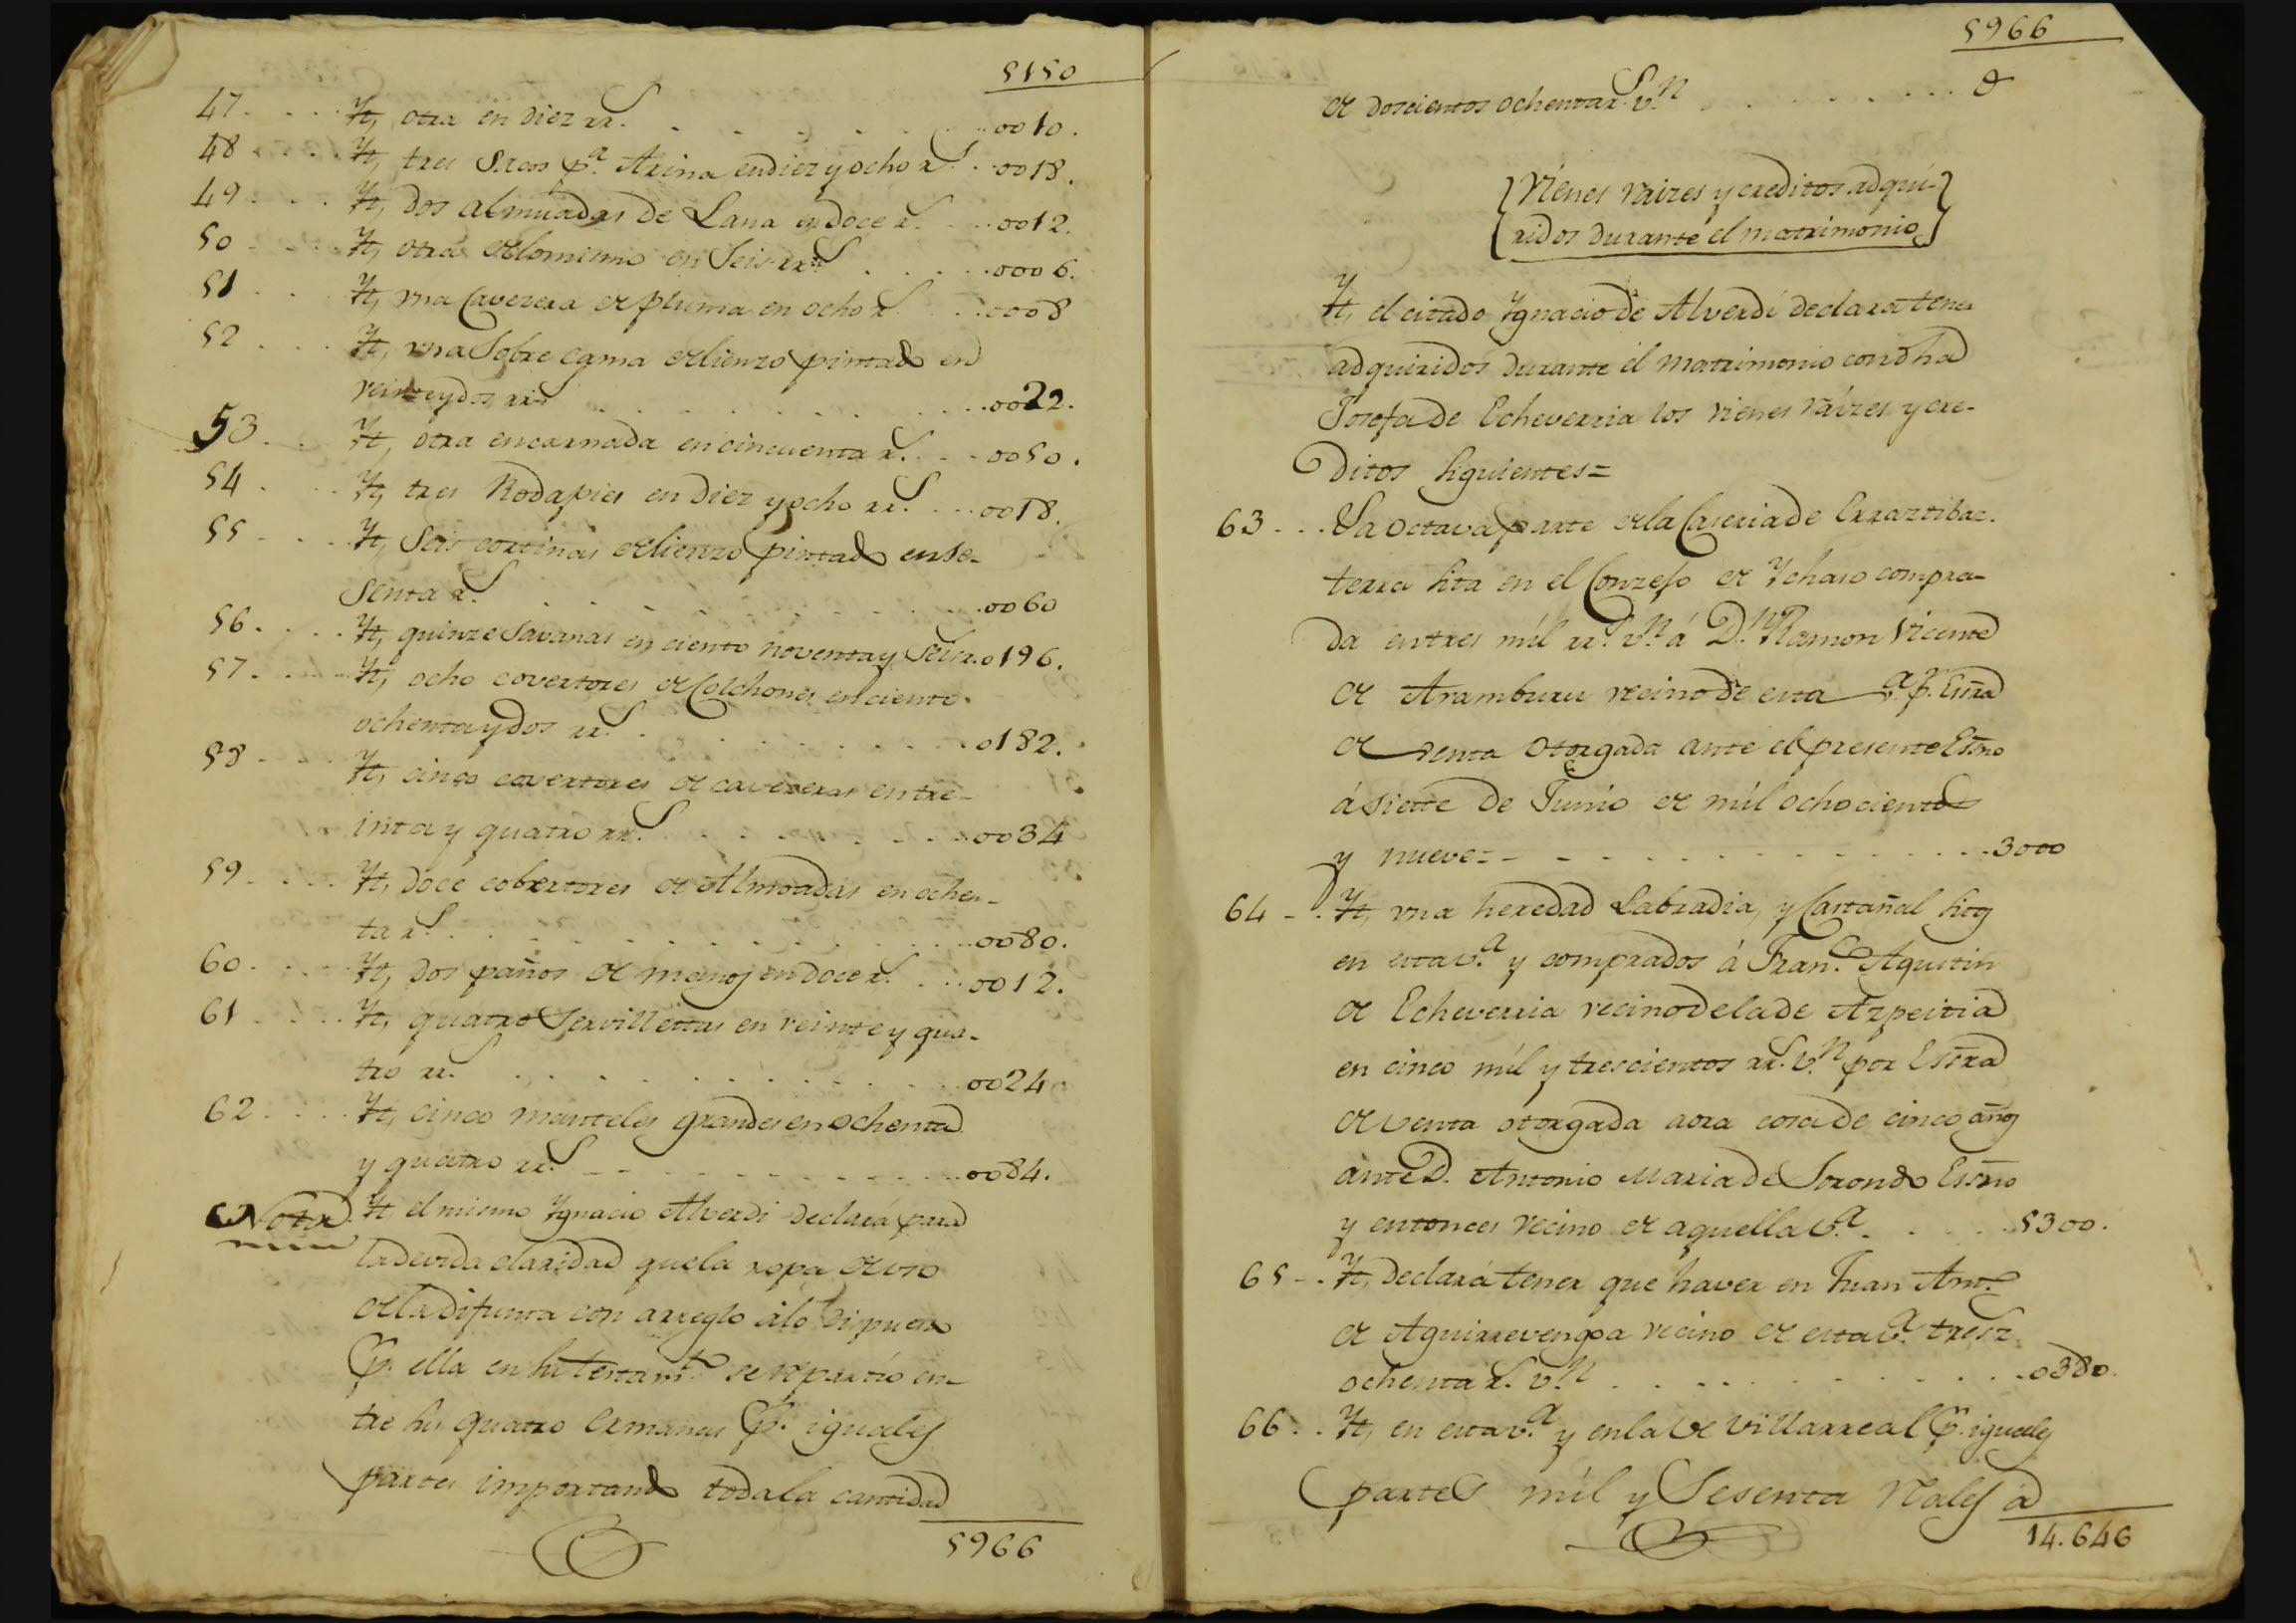 5150
47. . . . Yt, otra en diez rr.s . . . . . . 0010.
48 . . . . Yt, tres Sacos p.a Arina en diez y ocho r.s . . 0018.
49 . . . . Yt, dos almuadas de Lana en doce r.s . . . 0012.
50 . . . . Yt, otra de lo mismo en Seis rr.s . . . . . 0006.
51 . . . Yt, vna Cavezera de pluma en ocho r.s . . . 0008
52 . . . . Yt, vna Sobre cama de lienzo pintado en
veinte y dos rr.s . . . . . . . . . 0022.
53. . . Yt, otra encarnada en cincuenta r.s . . . 0050.
54 . . . Yt, tres Rodapies en Diez y ocho rr.s . . . 0018.
55 . . . . Yt, Seis cortinas de lienzo pintado en se-
senta r.s . . . . . . . . . . 0060
56. . . . . Yt, quinze Savanas en ciento noventa y Seis r. 0196.
57. . . . . Yt, ocho covertores de Colchones en ciento
ochenta y dos rr.s . . . . . . . . 0182.
58 . . . . Yt, cinco covertores de cavezeras en tre-
inta y quatro rr.s . . . . . . . . 0034
59. . . . . Yt, doce cobertores de Almoadas en ochen-
ta r.s . . . . . . . . . . . 0080.
60. . . . . Yt, dos paños de manos en doce r.s . . . 0012.
61 . . . . Yt, quatro Servilletas en veinte y qua-
tro rr.s . . . . . . . . . . . 0024
62 . . . . Yt, cinco manteles grandes en ochenta
y quatro rr.s . . . . . . . . . . 0084.
Nota. Yt, el mismo Ygnacio Alverdi declará para
la devida claridad que la ropa de vso
de la difunta con arreglo álo dispuesto
p.r ella en su testam.to se repartio en-
tre sus quatro Ermanas p.r iguales
partes importando toda la cantidad
5966
5966
de doscientos ochenta r.s v.n . . . . . . . . .
Vienes raizes y creditos adqui-
ridos durante el matrimonio
Yt, el citado Ygnacio de Alverdi declara tener
adquiridos durante el matrimonio con dha
Josefa de Echeverria los vienes ráizes y cre-
ditos siguientes=
63. . . La octava parte de la Caseria de Errazti bar-
terra sita en el Conzejo de Ychaso compra-
da en tres mil rr.s v.n á D.n Ramon Vicente
de Aramburu vecino de esta v.a p.r Esíra
de venta otorgada ante el presente Esíno
á siete de Junio de mil ochocientos
y nueve= . . . . . . . . . . . . 3000
64 . . Yt, vna heredad Labradia, y Castañal sitos
en esta v.a y comprados á Fran.co Agustin
de Echeverria vecino de la de Azpeitia
en cinco mil y trescientos rr.s v.n por Esíra
de venta otorgada aora cosa de cinco años
ante D. Antonio Maria de Sorondo Esíno
y entonces vecino de aquella v.a . . . . 5300.
65 . . Yt, declará tener que haver en Juan Ant.o
de Aguirrevengoa vecino de esta v.a tresz.
ochenta r.s v.n . . . . . . . . . . 0380.
66. . . Yt, en esta v.a y en la de Villarreal p.r iguales
partes mil y Sesenta Nales a
14.646